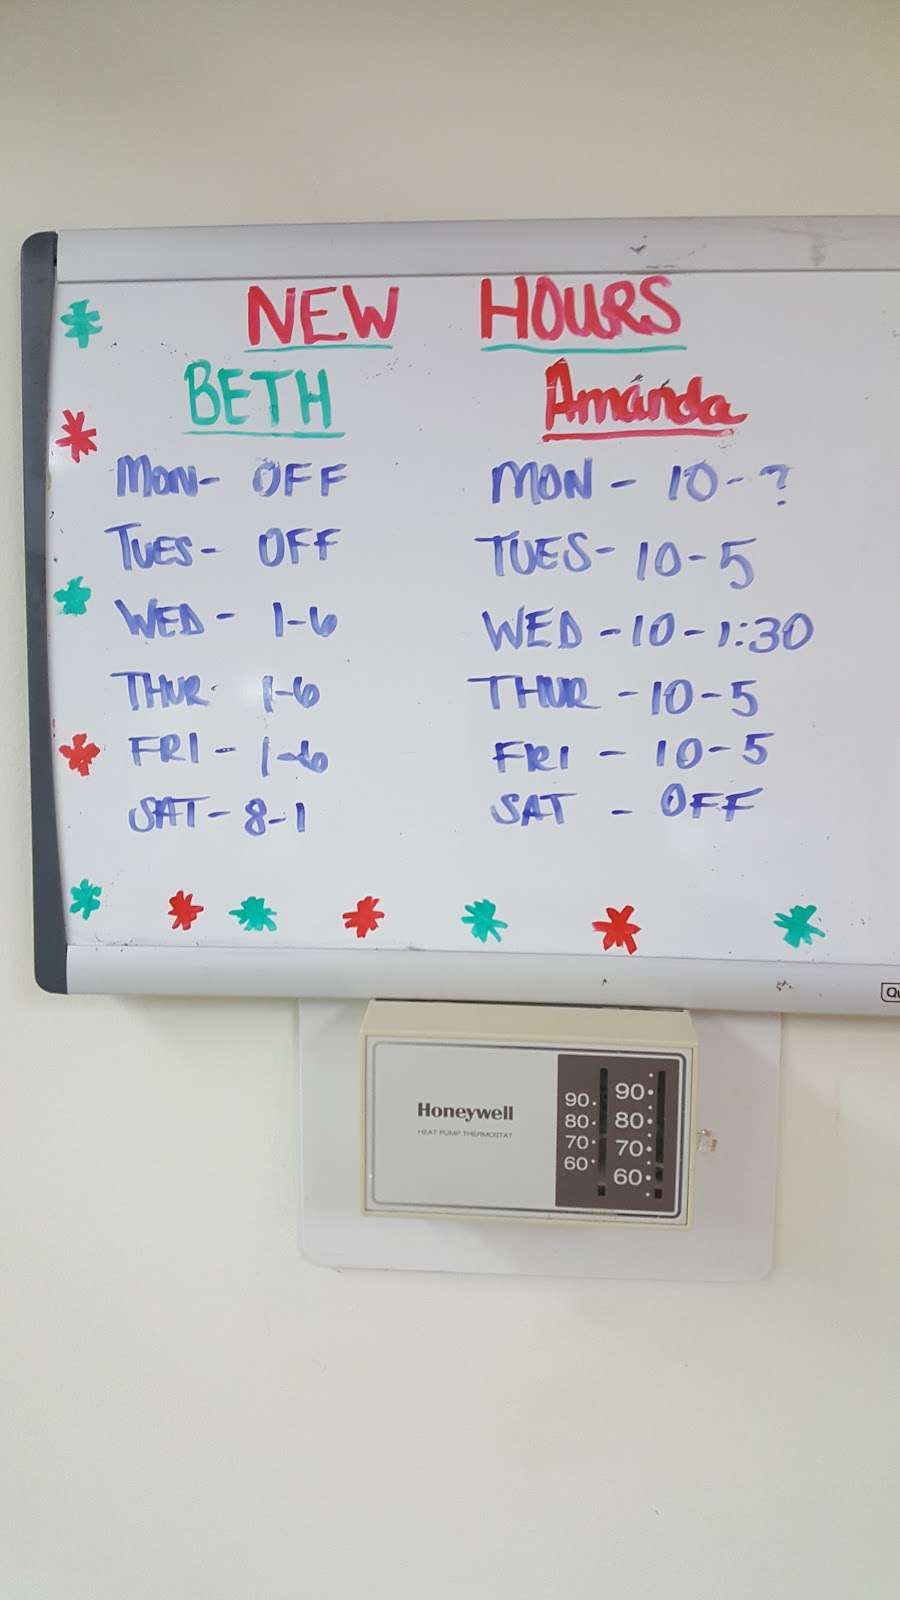 NEW HOURS
BETH
MON- OFF
TUES- OFF
WED- 1-6
THUR- 1-6
FRI- 1-6
SAT- 8-1
Amanda
MON - 10-?
TUES- 10-5
WED -10-1:30
THUR -10-5
FRI - 10-5
SAT - OFF
Honeywell
HEAT PUMP THERMOSTAT
90 90
80 80
70 70
60 60